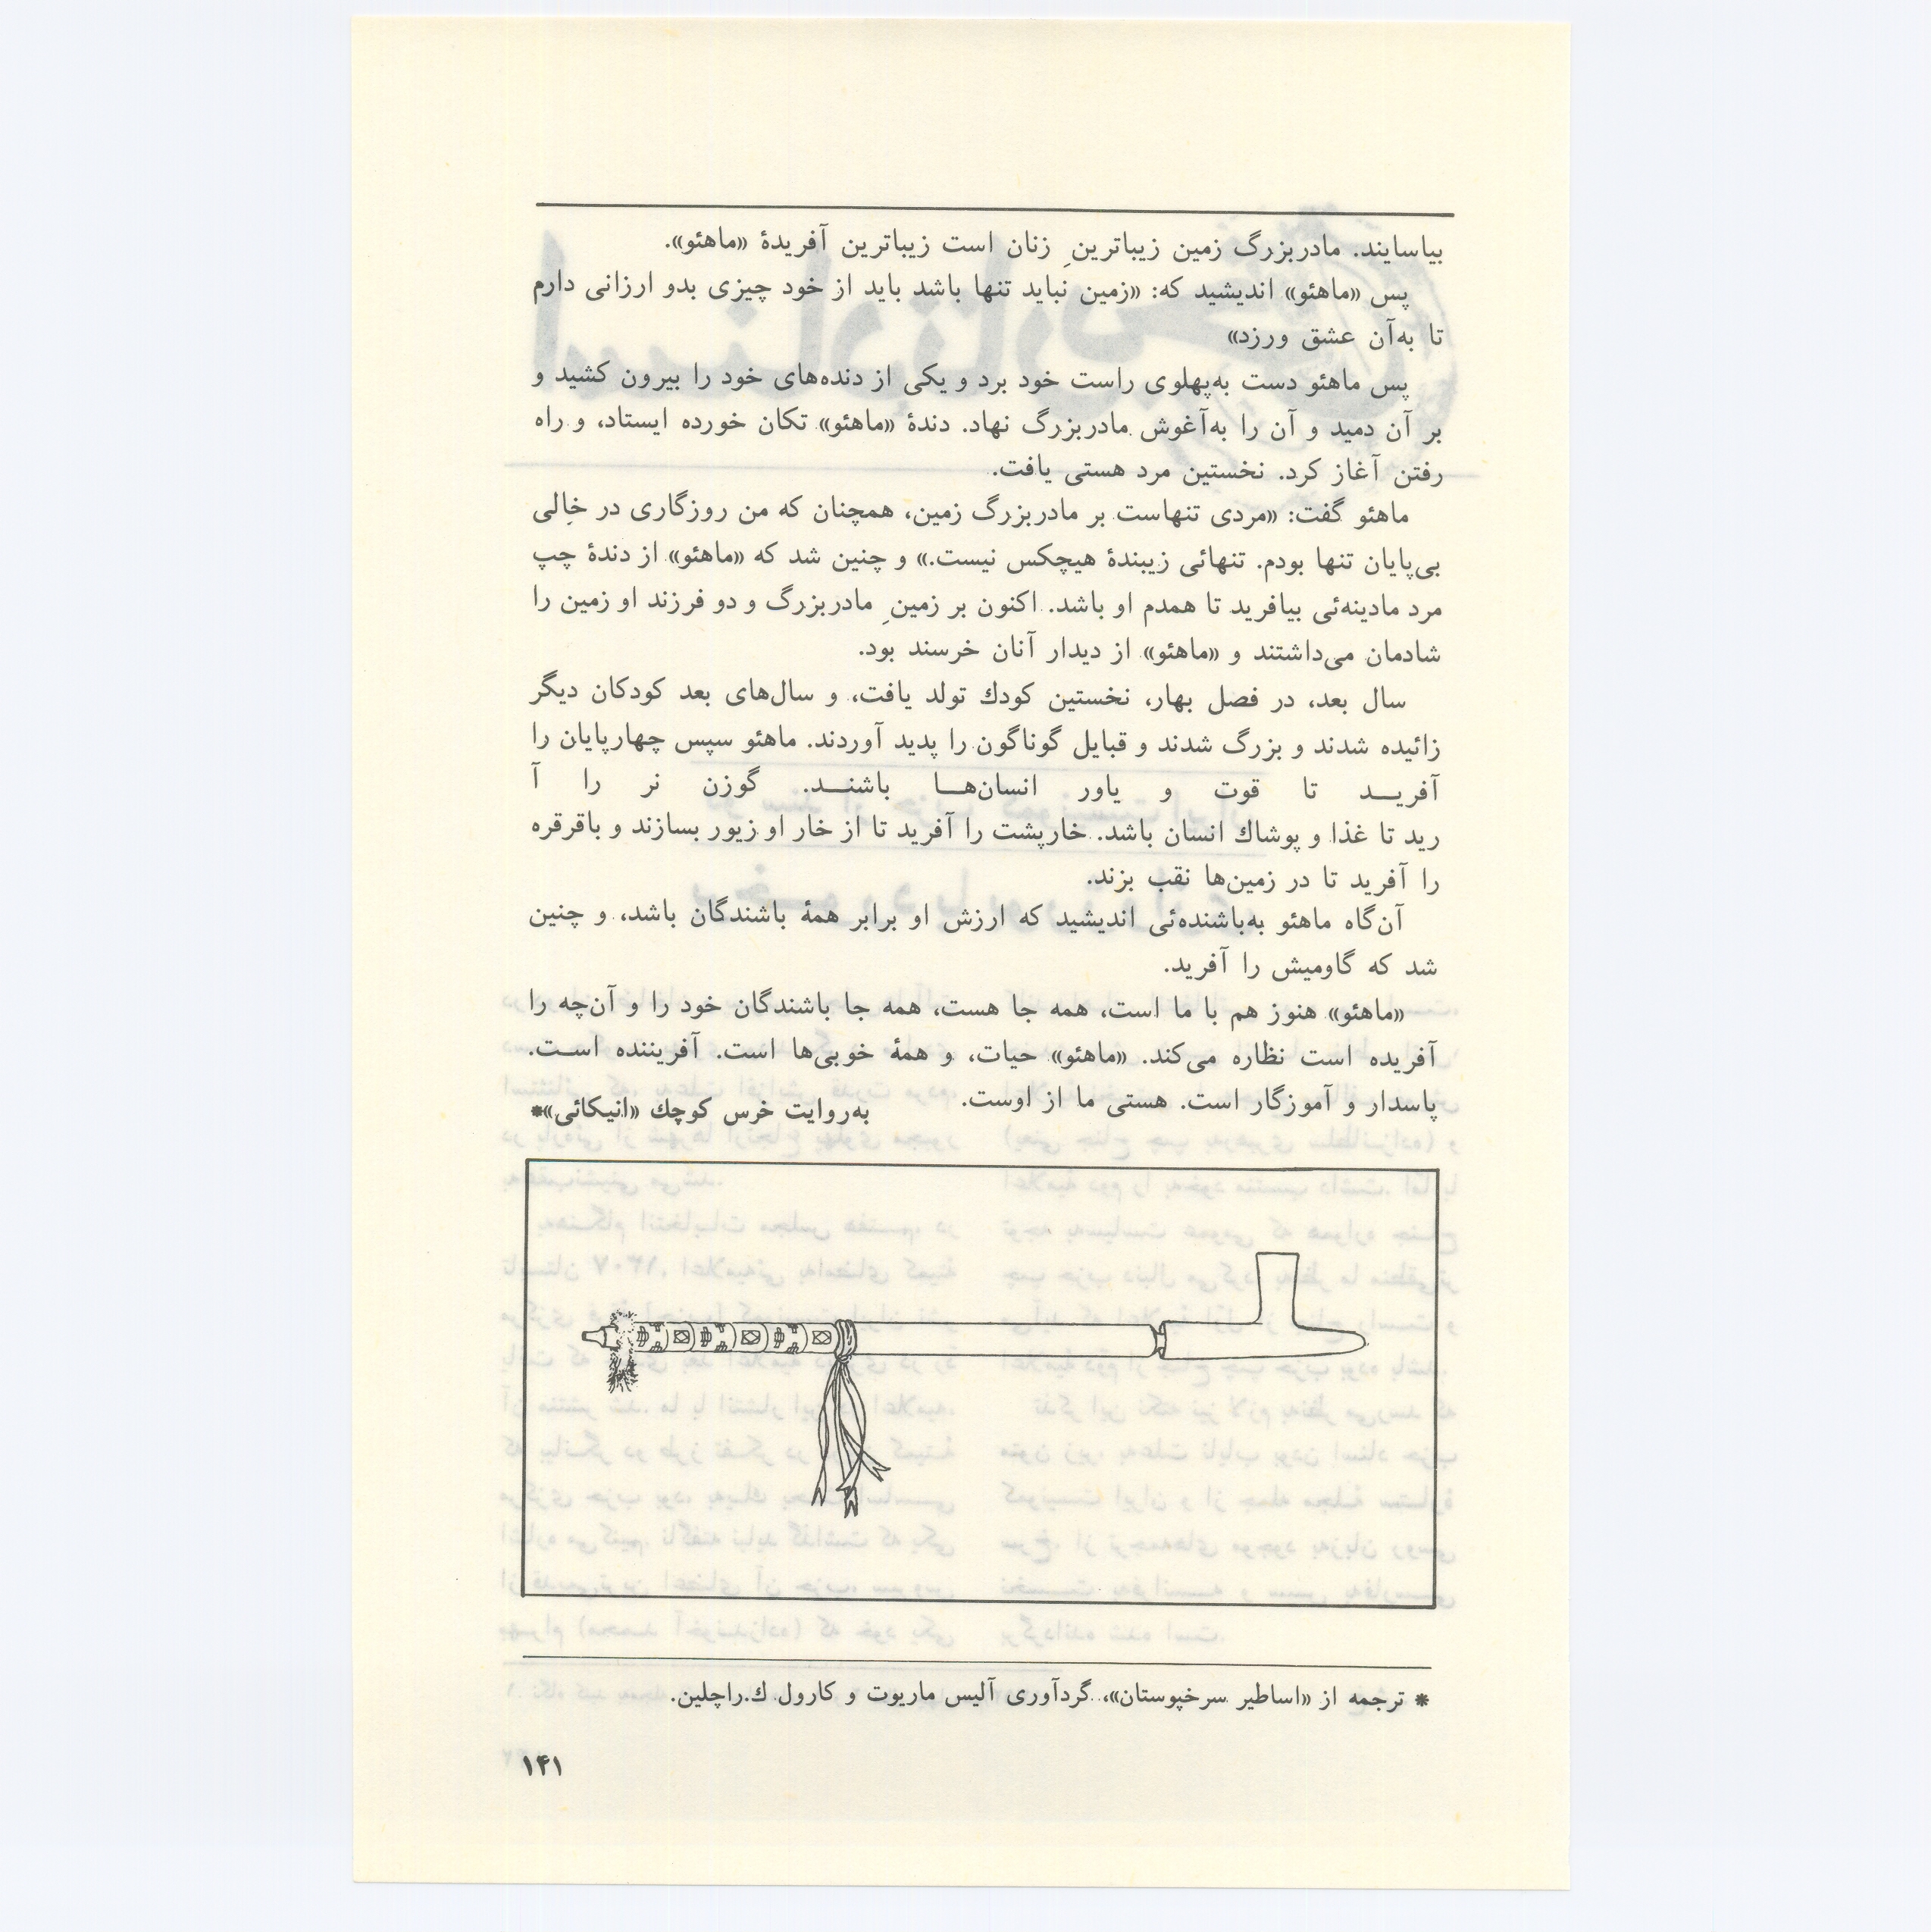 بیاسایند. مادربزرگ زمین زیباترینِ زنان است زیباترین آفریدهٔ «ماهئو».
پس «ماهئو» اندیشید که: «زمین نباید تنها باشد باید از خود چیزی بدو ارزانی دارم
تا به‌آن عشق ورزد»
پس ماهئو دست به‌پهلوی راست خود برد و یکی از دنده‌های خود را بیرون کشید و
بر آن دمید و آن را به‌آغوش مادربزرگ نهاد. دندهٔ «ماهئو» تکان خورده ایستاد، و راه
رفتن آغاز کرد. نخستین مرد هستی یافت.
ماهئو گفت: «مردی تنهاست بر مادربزرگ زمین، همچنان که من روزگاری در خالی
بی‌پایان تنها بودم. تنهائی زیبندهٔ هیچکس نیست.» و چنین شد که «ماهئو» از دندهٔ چپ
مرد مادینه‌ئی بیافرید تا همدم او باشد. اکنون بر زمینِ مادربزرگ و دو فرزند او زمین را
شادمان می‌داشتند و «ماهئو» از دیدار آنان خرسند بود.
سال بعد، در فصل بهار، نخستین کودك تولد یافت، و سال‌های بعد کودکان دیگر
زائیده شدند و بزرگ شدند و قبایل گوناگون را پدید آوردند. ماهئو سپس چهارپایان را
آفریـــد تا قوت و یاور انسان‌هـــا باشنـــد. گوزن نر را آ
رید تا غذا و پوشاك انسان باشد. خارپشت را آفرید تا از خار او زیور بسازند و باقرقره
را آفرید تا در زمین‌ها نقب بزند.
آن‌گاه ماهئو به‌باشنده‌ئی اندیشید که ارزش او برابر همهٔ باشندگان باشد، و چنین
شد که گاومیش را آفرید.
«ماهئو» هنوز هم با ما است، همه جا هست، همه جا باشندگان خود را و آن‌چه را
آفریده است نظاره می‌کند. «ماهئو» حیات، و همهٔ خوبی‌ها است. آفریننده اسـت.
پاسدار و آموزگار است. هستی ما از اوست.
به‌روایت خرس کوچك «انیکائی»*
* ترجمه از «اساطیر سرخپوستان»، گردآوری آلیس ماریوت و کارول ك.راچلین.
۱۴۱